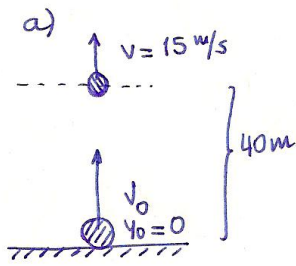 a)
v = 15 m/s
40m
v₀
y₀ = 0